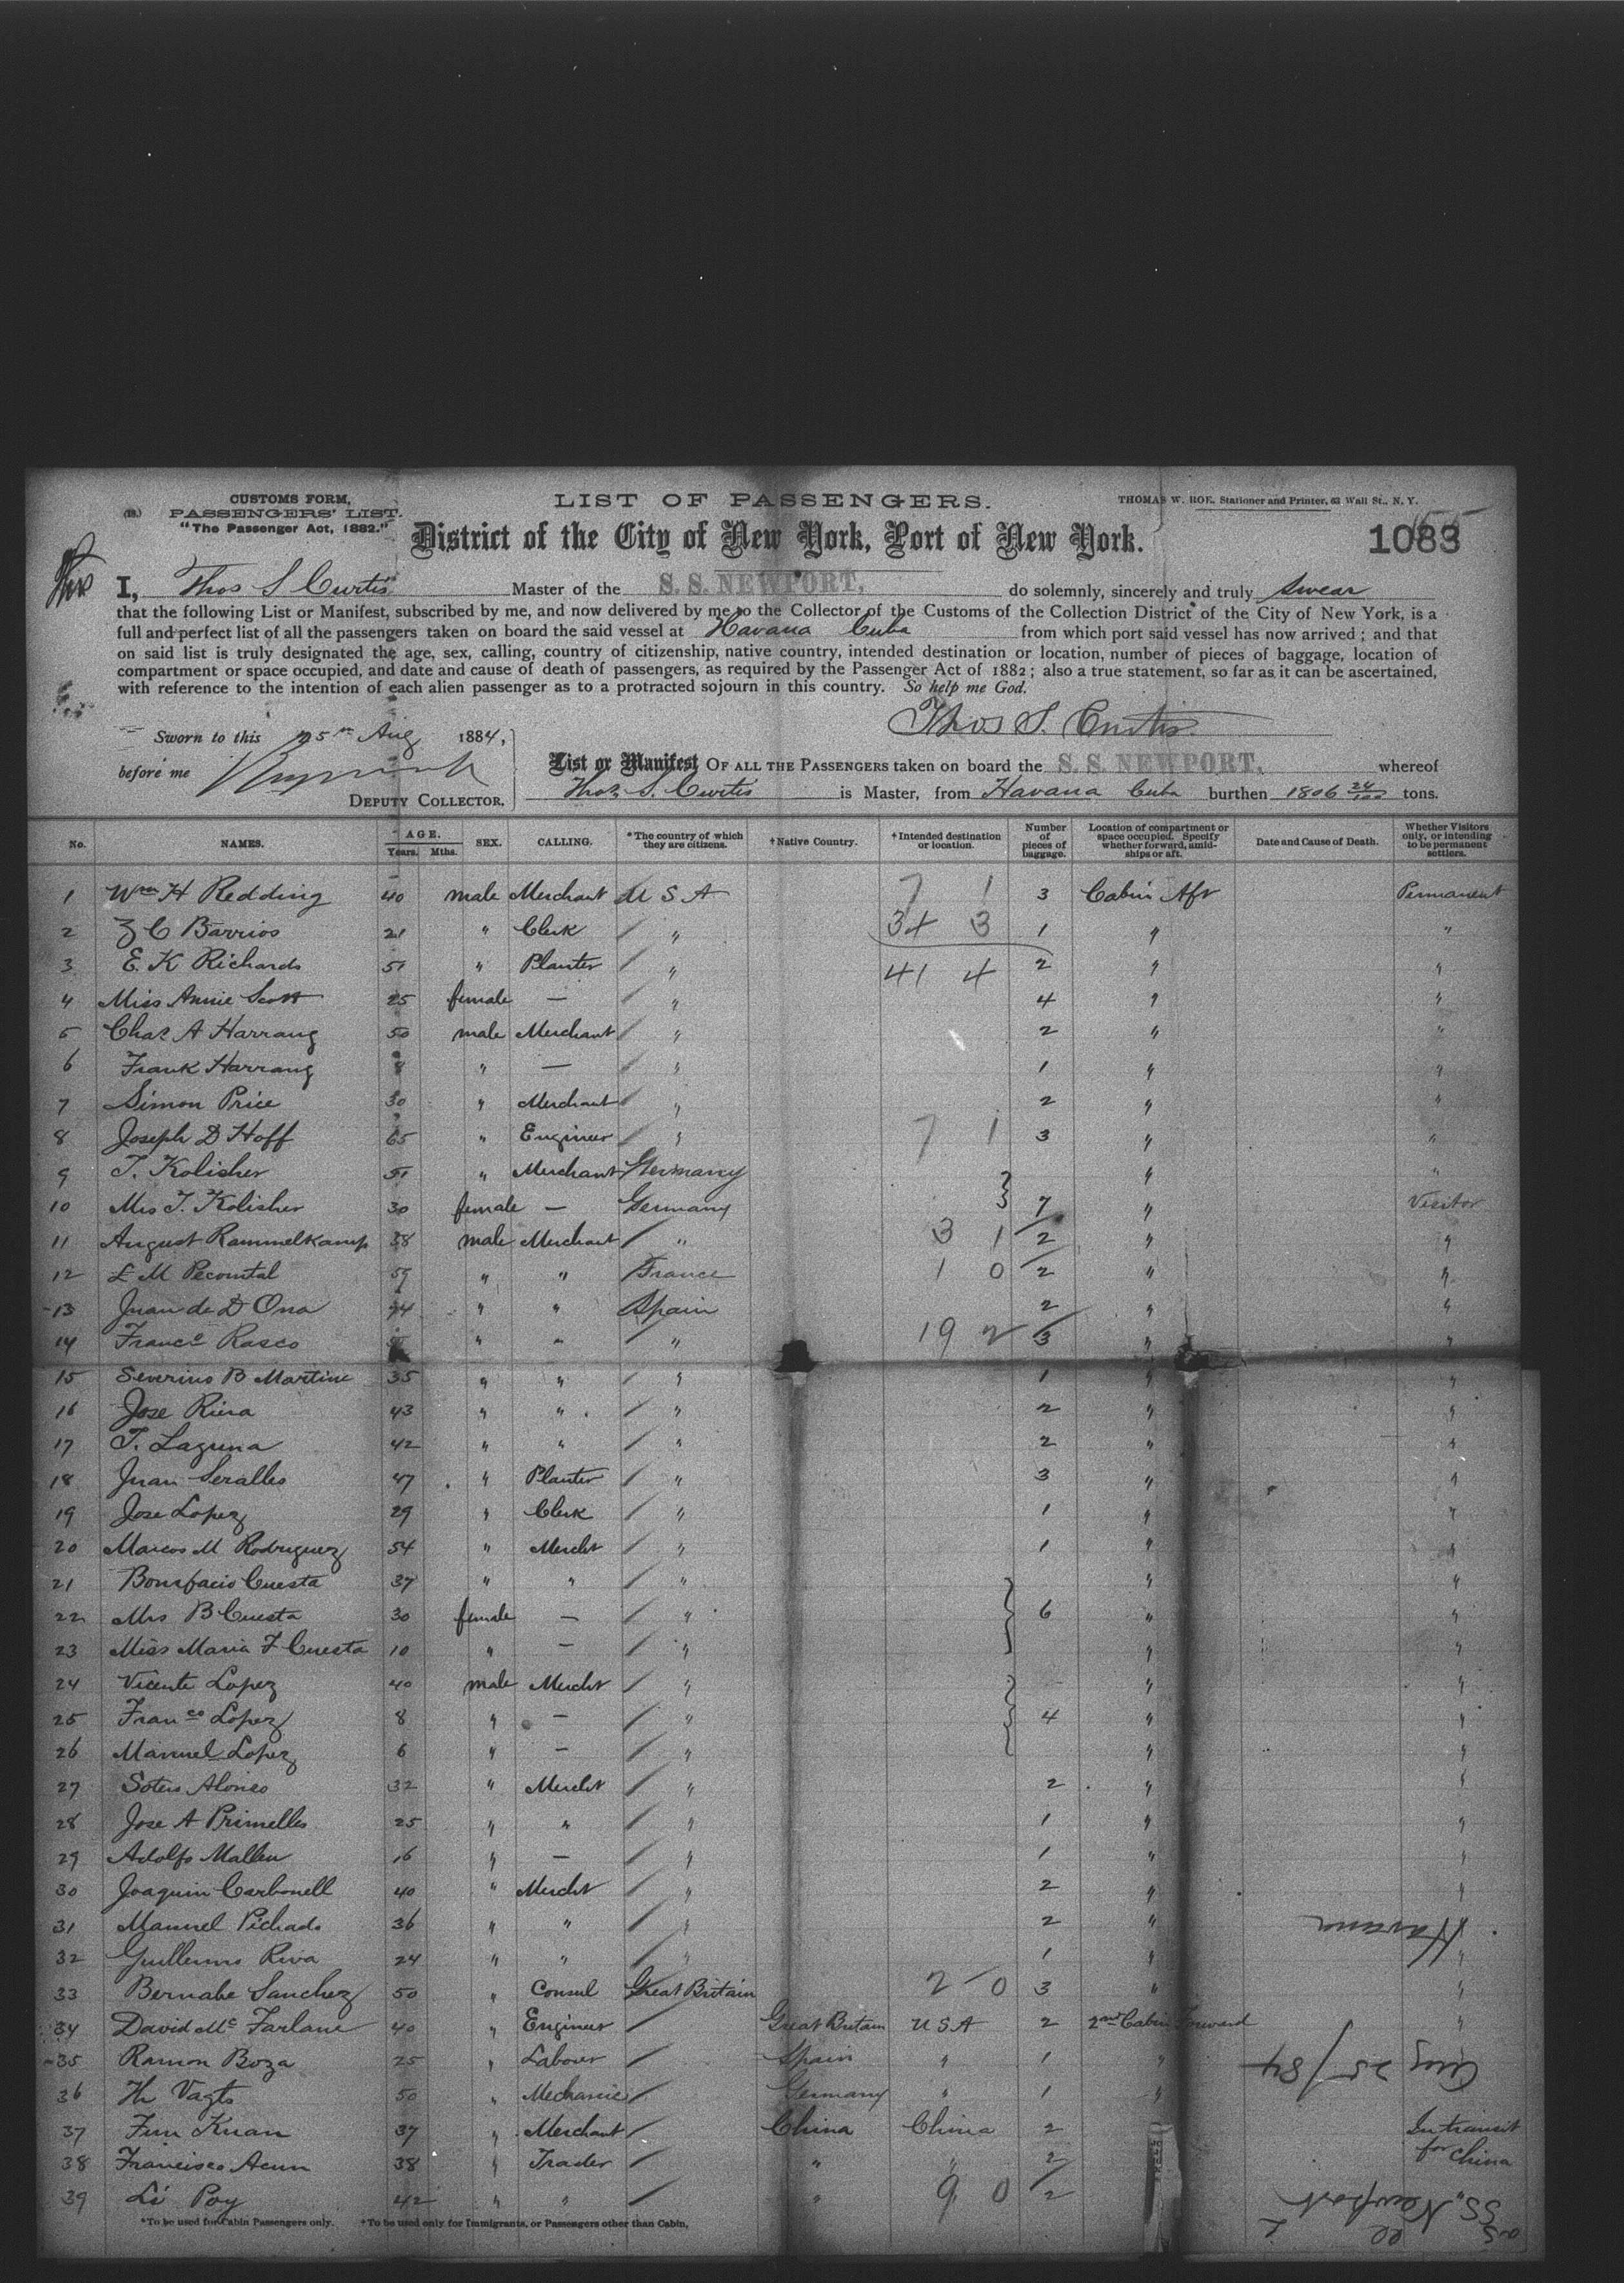 CUSTOMS FORM,
(18.) PASSENGERS' LIST.
"The Passenger Act, 1882."
LIST OF PASSENGERS.
THOMAS W. ROE, Stationer and Printer, 63 Wall St., N. Y.
District of the City of New York, Port of New York.
1083
I, Thos S Curtis Master of the S. S. NEWPORT, do solemnly, sincerely and truly swear
that the following List or Manifest, subscribed by me, and now delivered by me to the Collector of the Customs of the Collection District of the City of New York, is a
full and perfect list of all the passengers taken on board the said vessel at Havana Cuba from which port said vessel has now arrived; and that
on said list is truly designated the age, sex, calling, country of citizenship, native country, intended destination or location, number of pieces of baggage, location of
compartment or space occupied, and date and cause of death of passengers, as required by the Passenger Act of 1882; also a true statement, so far as it can be ascertained,
with reference to the intention of each alien passenger as to a protracted sojourn in this country. So help me God.
Thos S. Curtis
Sworn to this 25th Aug 1884,
before me
DEPUTY COLLECTOR.
List or Manifest OF ALL THE PASSENGERS taken on board the S. S. NEWPORT, whereof
Thos S. Curtis is Master, from Havana Cuba burthen 1806 24/100 tons.
No. NAMES. AGE. Years. Mths. SEX. CALLING. *The country of which they are citizens. †Native Country. †Intended destination or location. Number of pieces of baggage. Location of compartment or space occupied. Specify whether forward, amidships or aft. Date and Cause of Death. Whether Visitors only, or intending to be permanent settlers.
1 Wm H Redding 40 male Merchant U S A 7 1 3 Cabin Aft Permanent
2 Z C Barrios 21 " Clerk " 34 3 1 " "
3 E. K Richards 51 " Planter " 41 4 2 " "
4 Miss Annie Scott 25 female — " 4 " "
5 Chas A Harrang 50 male Merchant " 2 " "
6 Frank Harrang 8 " — " 1 " "
7 Simon Price 30 " Merchant " 2 " "
8 Joseph D Hoff 65 " Engineer " 7 1 3 " "
9 T. Kolisher 51 " Merchant Germany " "
10 Mrs T. Kolisher 30 female — Germany 7 " Visitor
11 August Rammelkamp 38 male Merchant " 3 1 2 " "
12 L M Pecomtal 59 " " France 1 0 2 " "
13 Juan de D Ona " " Spain 2 " "
14 Franco Rasco " " " 19 2 3 " "
15 Severino B Martine 35 " " " 1 " "
16 Jose Riera 43 " " " 2 " "
17 T. Laguna 42 " " " 2 " "
18 Juan Seralles 47 " Planter " 3 " "
19 Jose Lopez 29 " Clerk " 1 " "
20 Marcos M Rodriguez 54 " Mercht " 1 " "
21 Bonifacio Cuesta 37 " " " " "
22 Mrs B Cuesta 30 female — " 6 " "
23 Miss Maria F Cuesta 10 " — " " "
24 Vicente Lopez 40 male Mercht " " "
25 Franco Lopez 8 " — " 4 " "
26 Manuel Lopez 6 " — " " "
27 Sotero Alonso 32 " Mercht " 2 " "
28 Jose A Primelles 25 " " " 1 " "
29 Adolfo Mallen 16 " — " 1 " "
30 Joaquin Carbonell 40 " Mercht " 2 " "
31 Manuel Pichado 36 " " " 2 " "
32 Guillermo Riva 24 " " " 1 " "
33 Bernabe Sanchez 50 " Consul Great Britain 2 0 3 " "
34 David Mc Farlane 40 " Engineer Great Britain U S A 2 2nd Cabin Forward "
35 Ramon Boza 25 " Labour Spain " 1 "
36 Hr Vagts 50 " Mechanic Germany " 1 "
37 Fun Kuan 37 " Merchant China China 2 In transit
38 Francisco Acun 38 " Trader " " 2 for China
39 Li Poy 42 " " " 9 0 2
*To be used for Cabin Passengers only. †To be used only for Immigrants, or Passengers other than Cabin.
Havana
Aug 25/84
SS "Newport